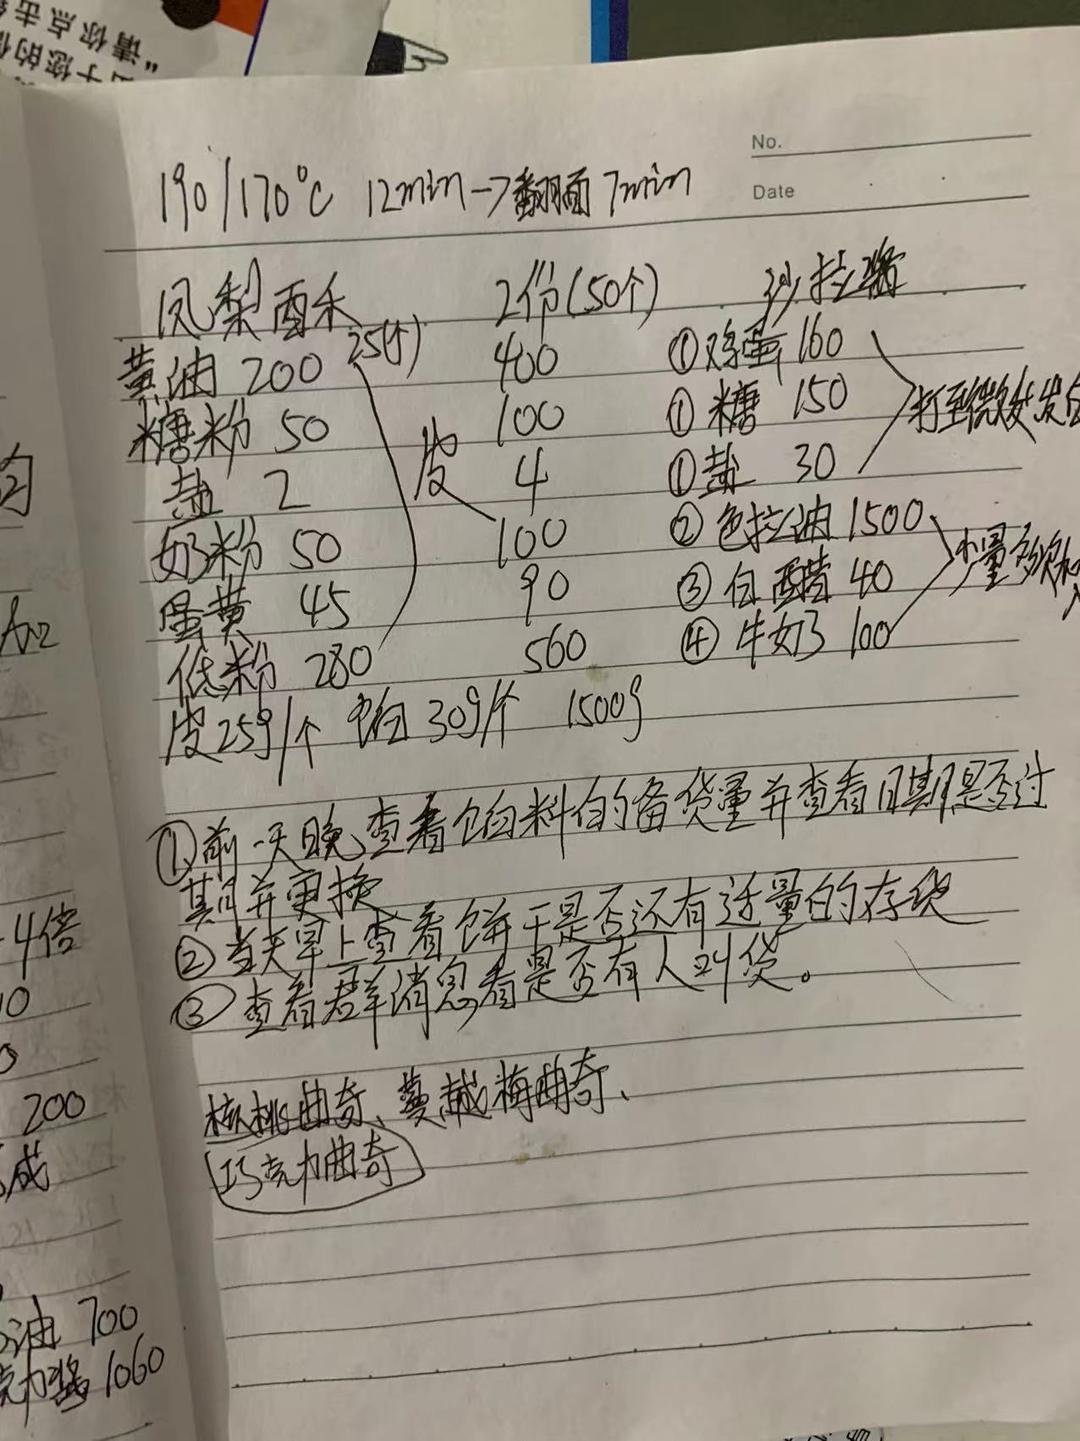 "请你点击
No.
Date
190/170°C 12min→翻面7min
凤梨酉禾 2份(50个) 沙拉酱
黄油 200 25(个) 400 ①鸡蛋 160
糖粉 50 100 ①糖 150 打至微发
盐 2 皮 4 ①盐 30
奶粉 50 100 ②色拉油 1500
蛋黄 45 90 ③白醋 40 少量多次
低粉 280 560 ④牛奶 100
皮25g/个 馅30g/个 1500g
①前一天晚查看馅料的备货量并查看日期是否过
期并更换
②当天早上查看饼干是否还有适量的存货
③查看群消息看是否有人叫货。
核桃曲奇、蔓越梅曲奇、
巧克力曲奇
4倍
200
油 700
克力酱 1060